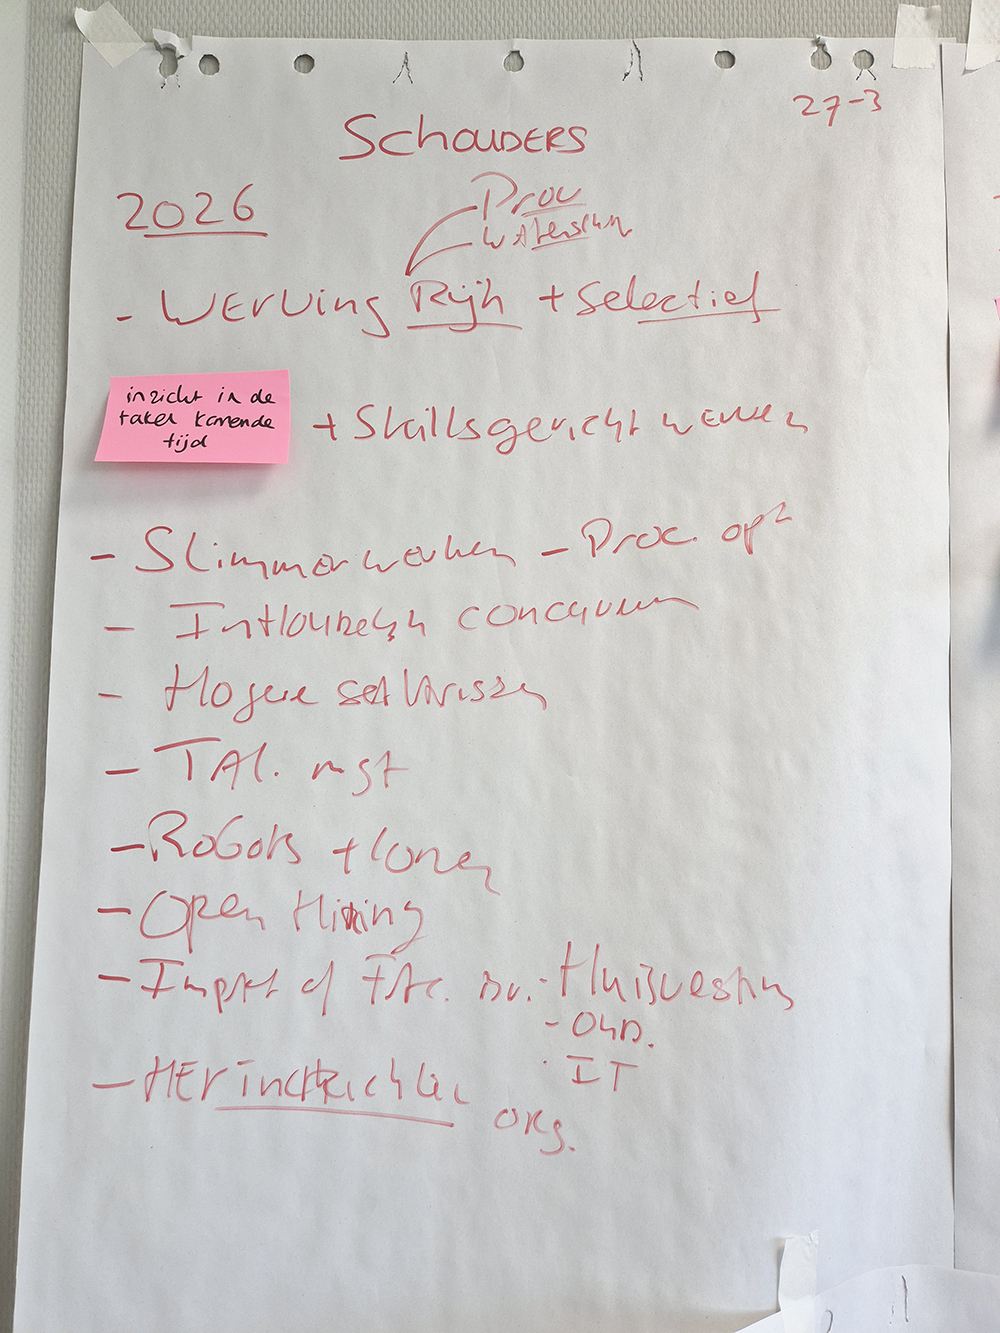 27-3
SCHOUDERS
2026
Prov
Waterschap
- WERVING Rijk + Selectief
inzicht in de
taken komende
tijd
+ Skillsgericht werven
- Slimmer werken - Proc. opt
- Inhoudelijk concurreren
- Hogere salarissen
- TAL. mgt
- ROBOTS + lonen
- Open Hiring
- Impact of FAC. Bv. - Huisvesting
- OND.
- IT
- HERinRichten ORG.